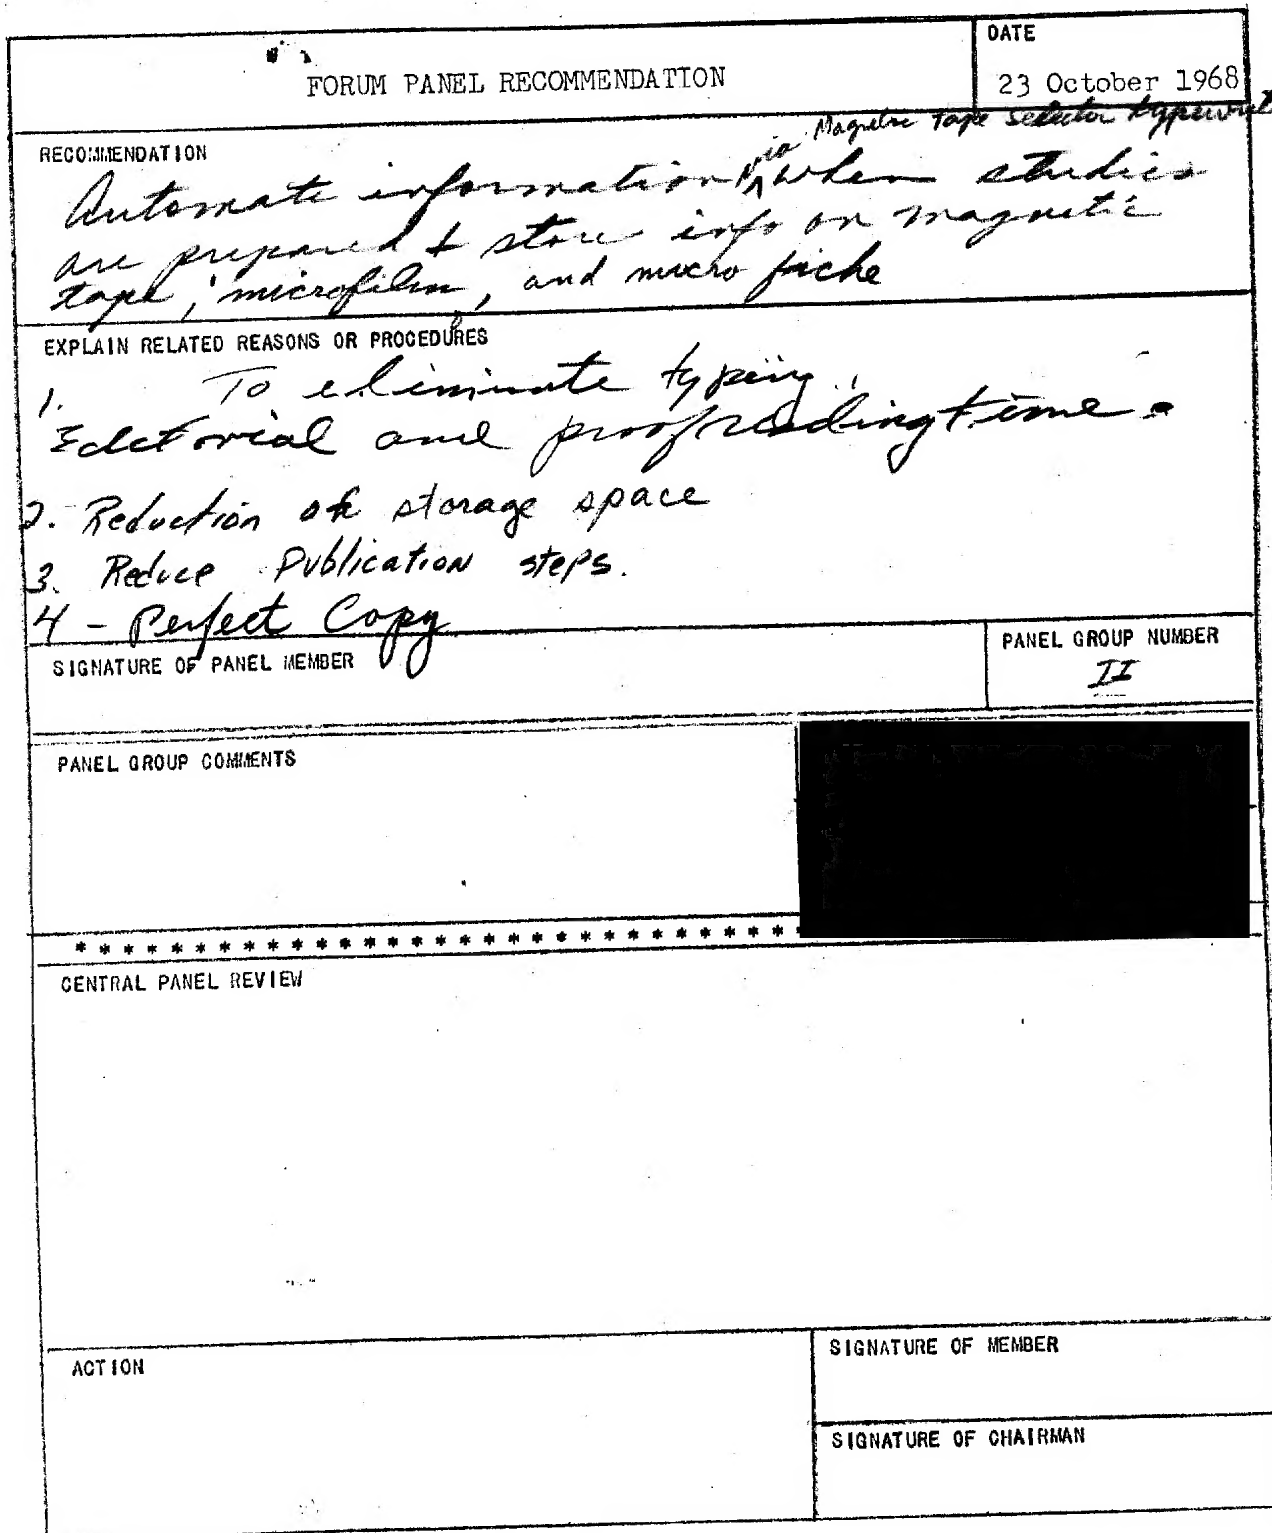 DATE
FORUM PANEL RECOMMENDATION
23 October 1968
RECOMMENDATION
via Magnetic Tape Selector typewrit
Automate information when studies
are prepared & store info on magnetic
tape, microfilm, and micro fiche
EXPLAIN RELATED REASONS OR PROCEDURES
1. To eliminate typing,
Editorial and proofreading time.
2. Reduction of storage space
3. Reduce Publication steps.
4 - Perfect Copy
SIGNATURE OF PANEL MEMBER
PANEL GROUP NUMBER
II
PANEL GROUP COMMENTS
* * * * * * * * * * * * * * * * * * * * * * * * * * * * * *
CENTRAL PANEL REVIEW
ACTION
SIGNATURE OF MEMBER
SIGNATURE OF CHAIRMAN